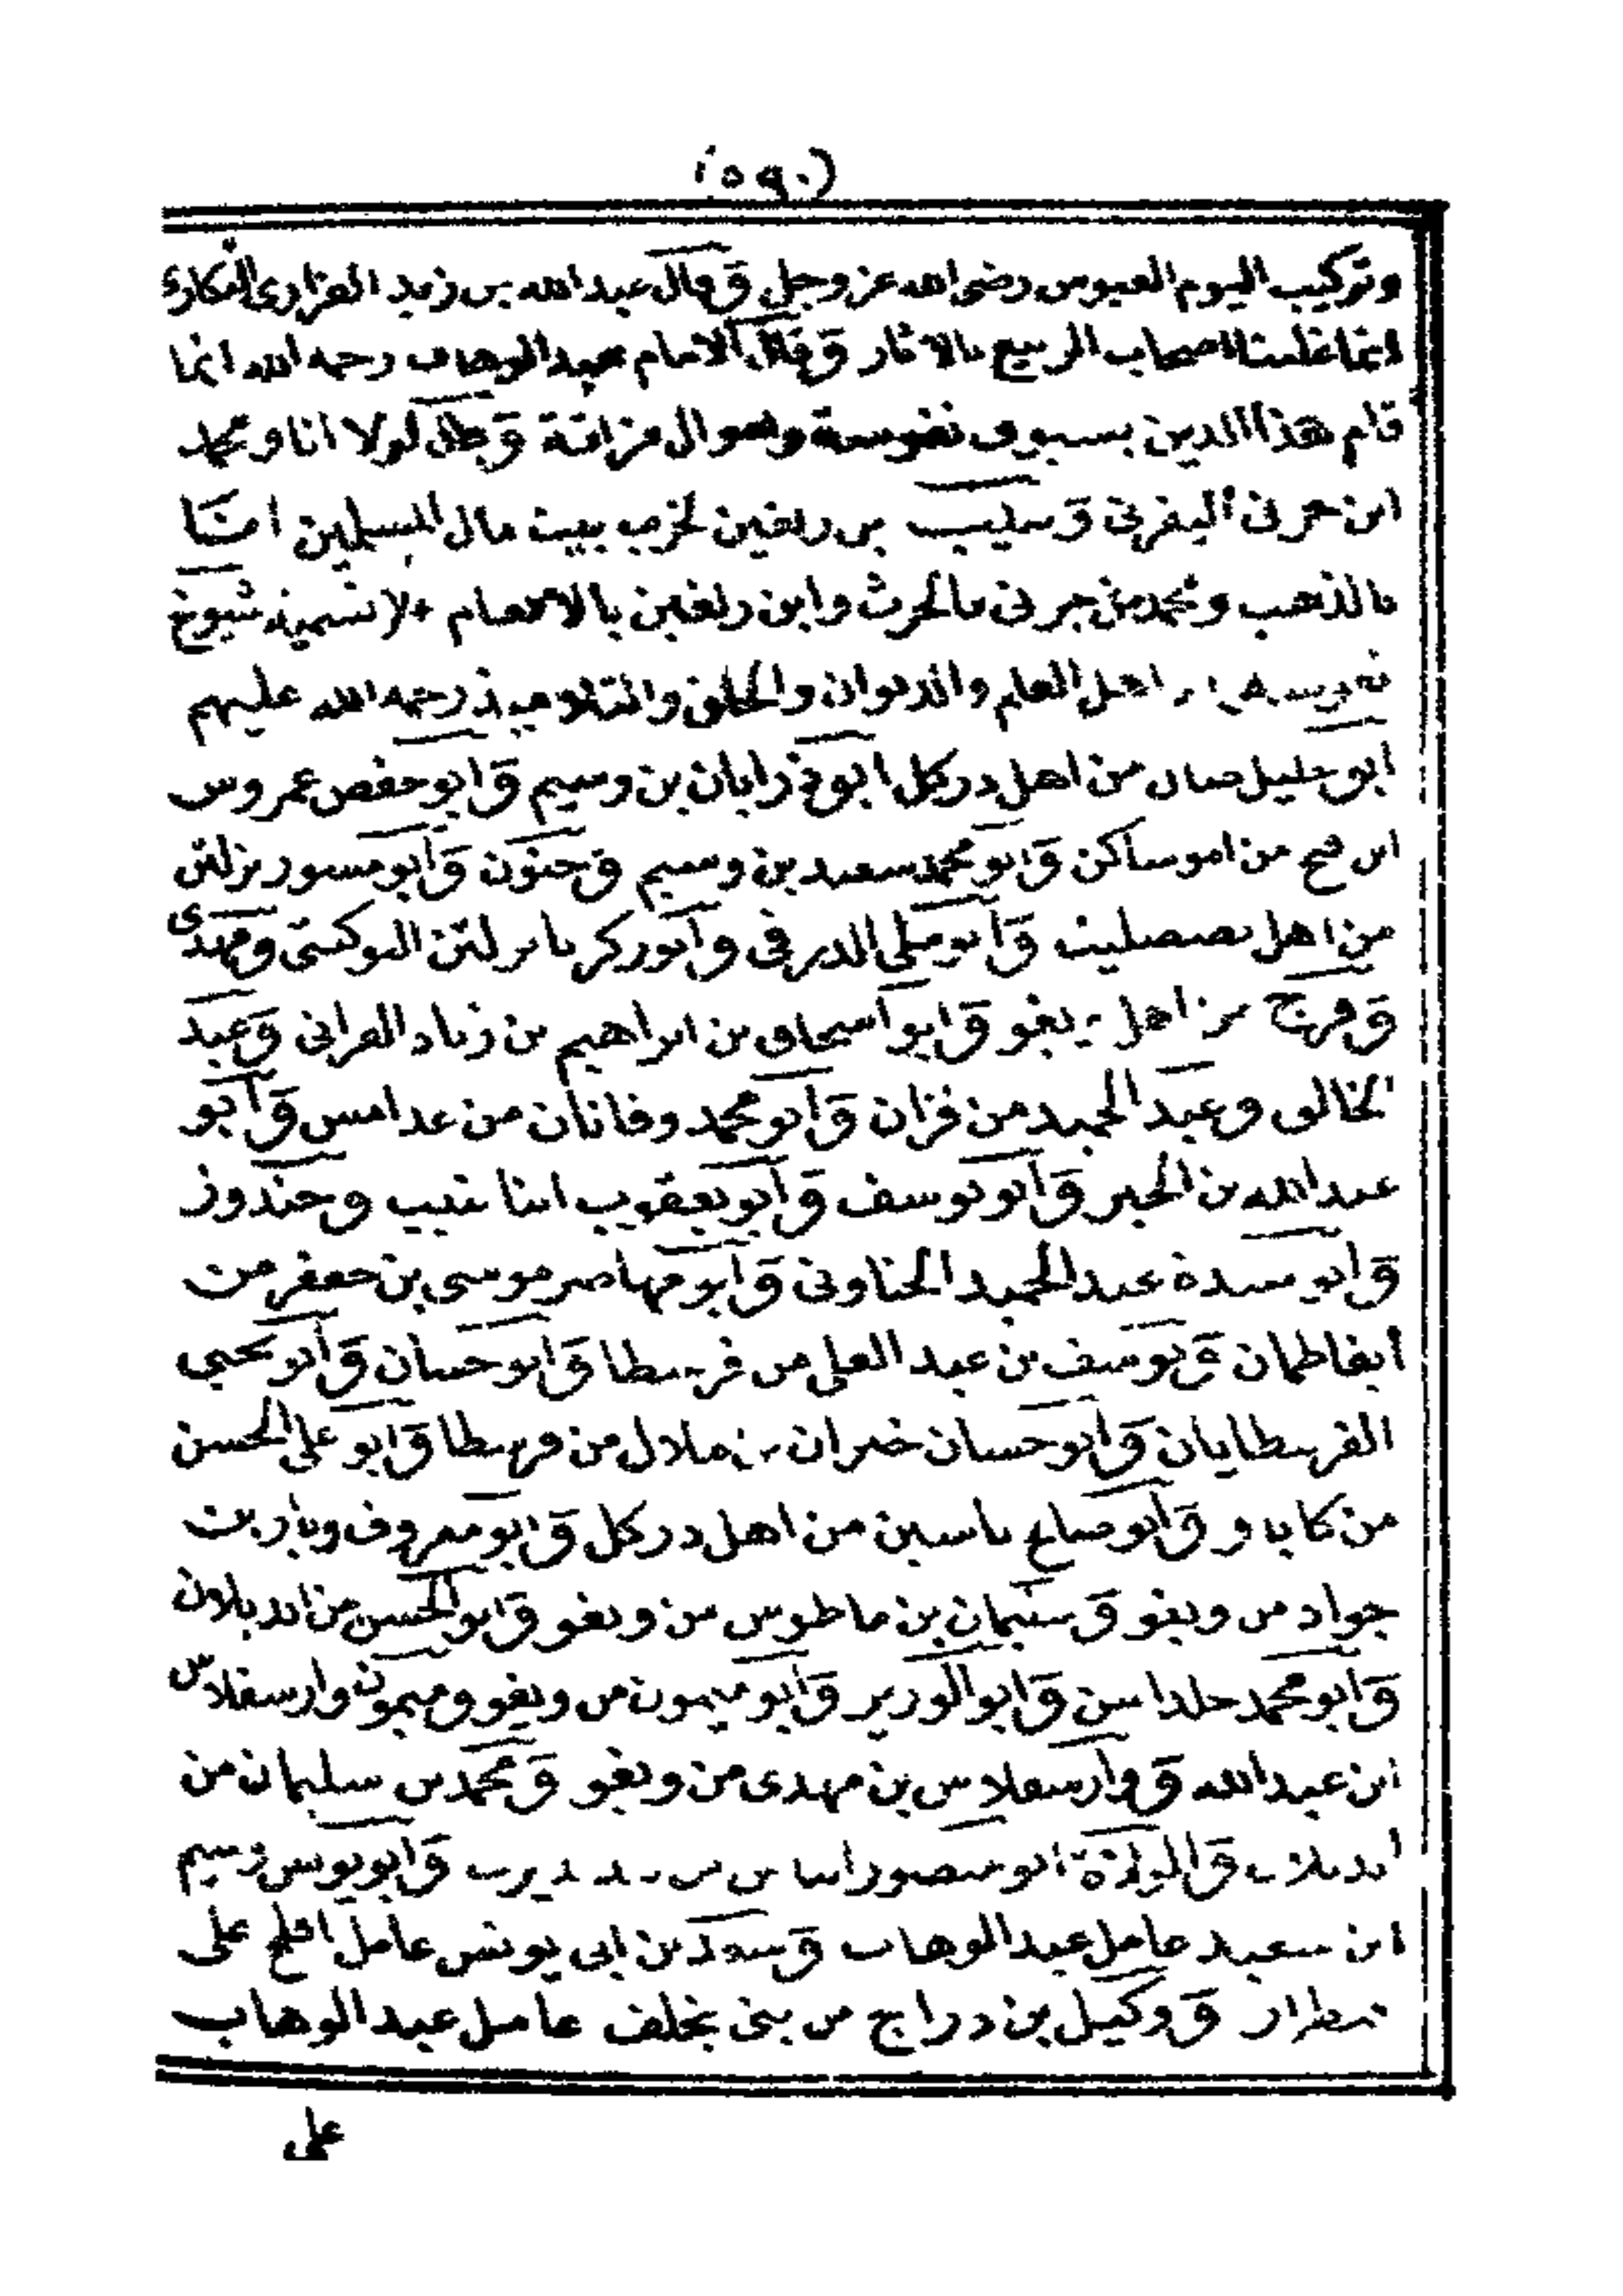 (٥٩٠)
وتركيب اليوم العبوس رضى الله عز وجل وقال عبد الله بن زيد الفزارى النكارى
انما غلبنا اصحاب الربيع بالاثار وقال الامام عبد الوهاب رحمه الله انما
قام هذا الدين بسيوف نفوسة واموال مزاتة وقال لولا انا ومحمد
ابن جرنى اليفرنى و بن زلغين لخرب بيت مال المسلمين انا
بالذهب ومحمد بن جرنى بالحرث وابن زلغين بالانعام تسمية شيوخ
نفوسة اهل العلم والديوان والحلق والتلاميذ رحمه الله عليهم
ابو خليل صال من اهل دركل ابو ذر ابان بن وسيم وابو حفص عمروس
ابن فتح من امو ساكن وابو محمد سعيد بن وسيم وحنون وابو مسور يزلتن
من اهل وابو الدرفى وابو زكرياء يرلتن التوكيتى ومهدى
وفرج من اهل ويغو وابو اسحاق بن ابراهيم بن زياد وعبد
الخالق وعبد الحميد من فزان وابو محمد وفانان من غدامس وابو
عبد الله بن الخير وابو يوسف وابو يعقوب ابنا وحندوز
وابو عبيدة عبد الحميد الجناونى وابو مهاصر موسى بن جعفر من
ايفاطمان ويوسف بن عبد العلى من فرسطا وابو حسان وابو يحيى
الفرسطايان وابو حسان خيران بن ملال من فرسطا وابو على الحسن
من كاباو وابو صالح ياسين من اهل دركل وابو معروف ويارين
جواد من ويغو وسليمان بن ماطوس من ويغو وابو الحسن من
وابو محمد وابو الوزير وابو ميمون من ويغو وميمون وارسفلاس
ابن عبد الله وارسفلاس بن مهدى من ويغو ومحمد بن سليمان من
ابو منصور الياس من وابو يونس وسيم
ابن سعيد عامل عبد الوهاب وسعد بن ابى يونس عامل افلح على
قنطرار ووكيل بن دراج من بنى يخلف عامل عبد الوهاب
على